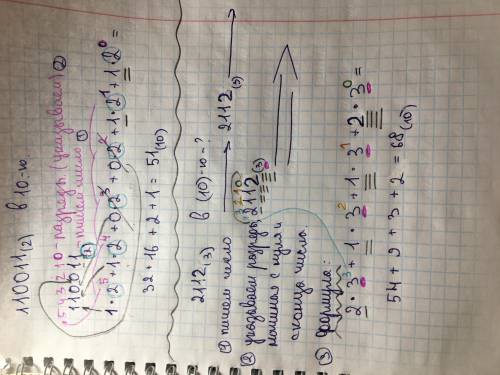 110011(2) в 10-ю.
543210 - разряды (указываем) ②
110011(2) - пишем число ①
1·2⁵+1·2⁴+0·2³+0·2²+1·2¹+1·2⁰=
32+16+2+1=51(10)
2112(3) в (10)-ю-?
① пишем число → 2112(3) →
3210
② указываем разряды, 2112(3)
начиная с нуля и
с конца числа
③ формула:
2·3³+1·3²+1·3¹+2·3⁰=
54+9+3+2=68(10)